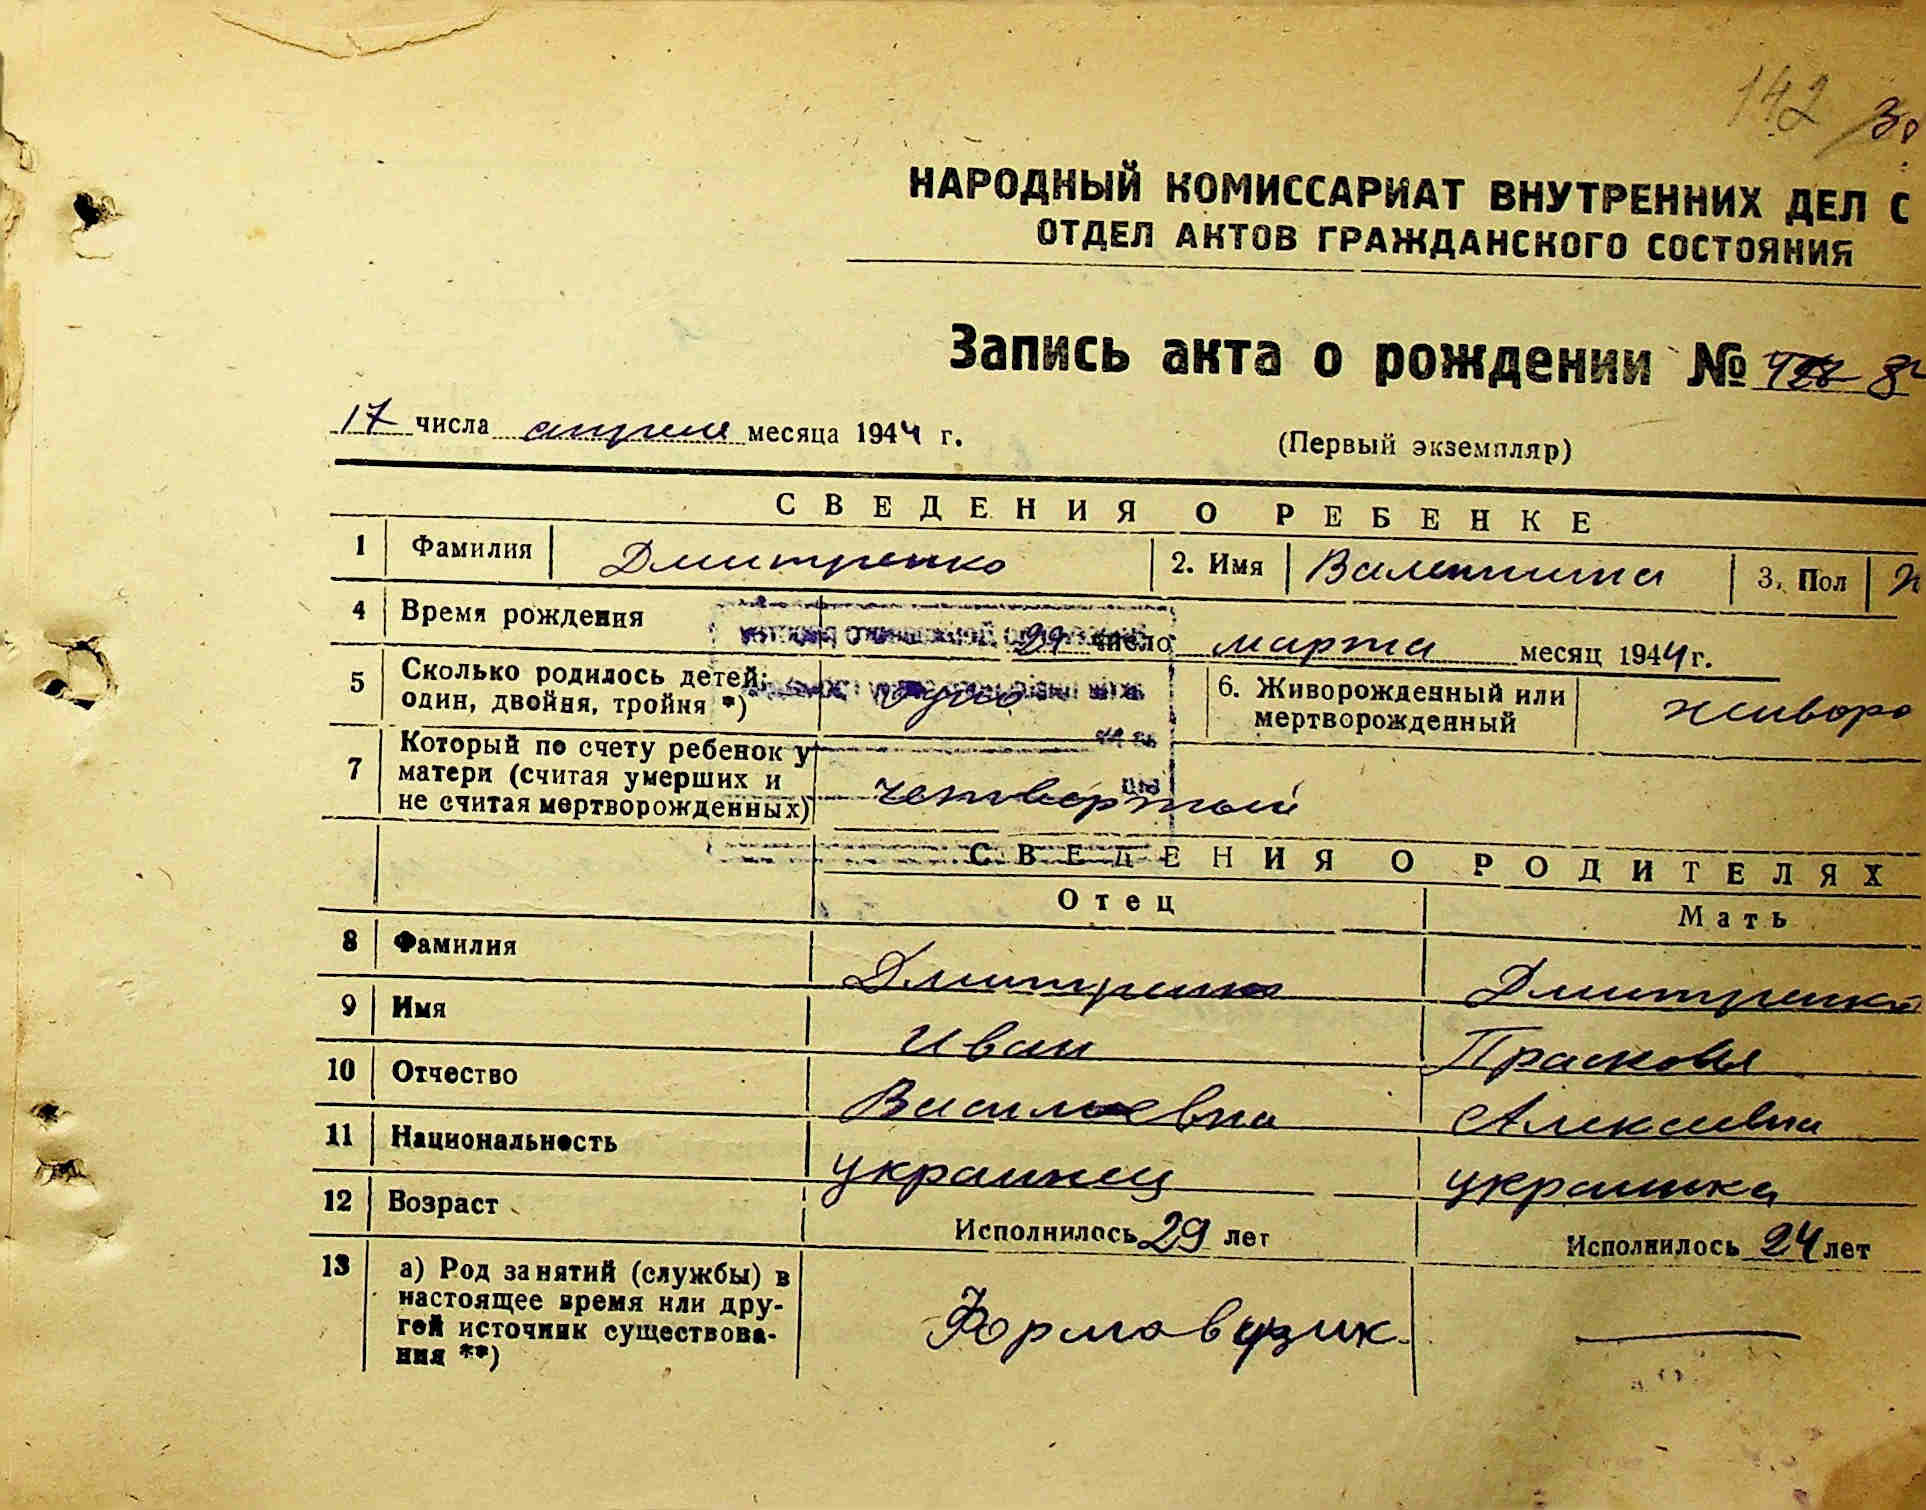 142
НАРОДНЫЙ КОМИССАРИАТ ВНУТРЕННИХ ДЕЛ С
ОТДЕЛ АКТОВ ГРАЖДАНСКОГО СОСТОЯНИЯ
Запись акта о рождении №
17 числа апреля месяца 1944 г.
(Первый экземпляр)
СВЕДЕНИЯ О РЕБЕНКЕ
1 Фамилия Дмитренко 2. Имя Валентина 3. Пол
4 Время рождения 29 число марта месяц 1944 г.
5 Сколько родилось детей: один, двойня, тройня *) одно 6. Живорожденный или мертворожденный живоро
7 Который по счету ребенок у матери (считая умерших и не считая мертворожденных) четвертый
СВЕДЕНИЯ О РОДИТЕЛЯХ
Отец Мать
8 Фамилия Дмитренко Дмитренко
9 Имя Иван Прасковья
10 Отчество Васильевна Алексеевна
11 Национальность украинец украинка
12 Возраст Исполнилось 29 лет Исполнилось 24 лет
13 а) Род занятий (службы) в
настоящее время или дру-
гой источник существова-
ния **) Формовщик